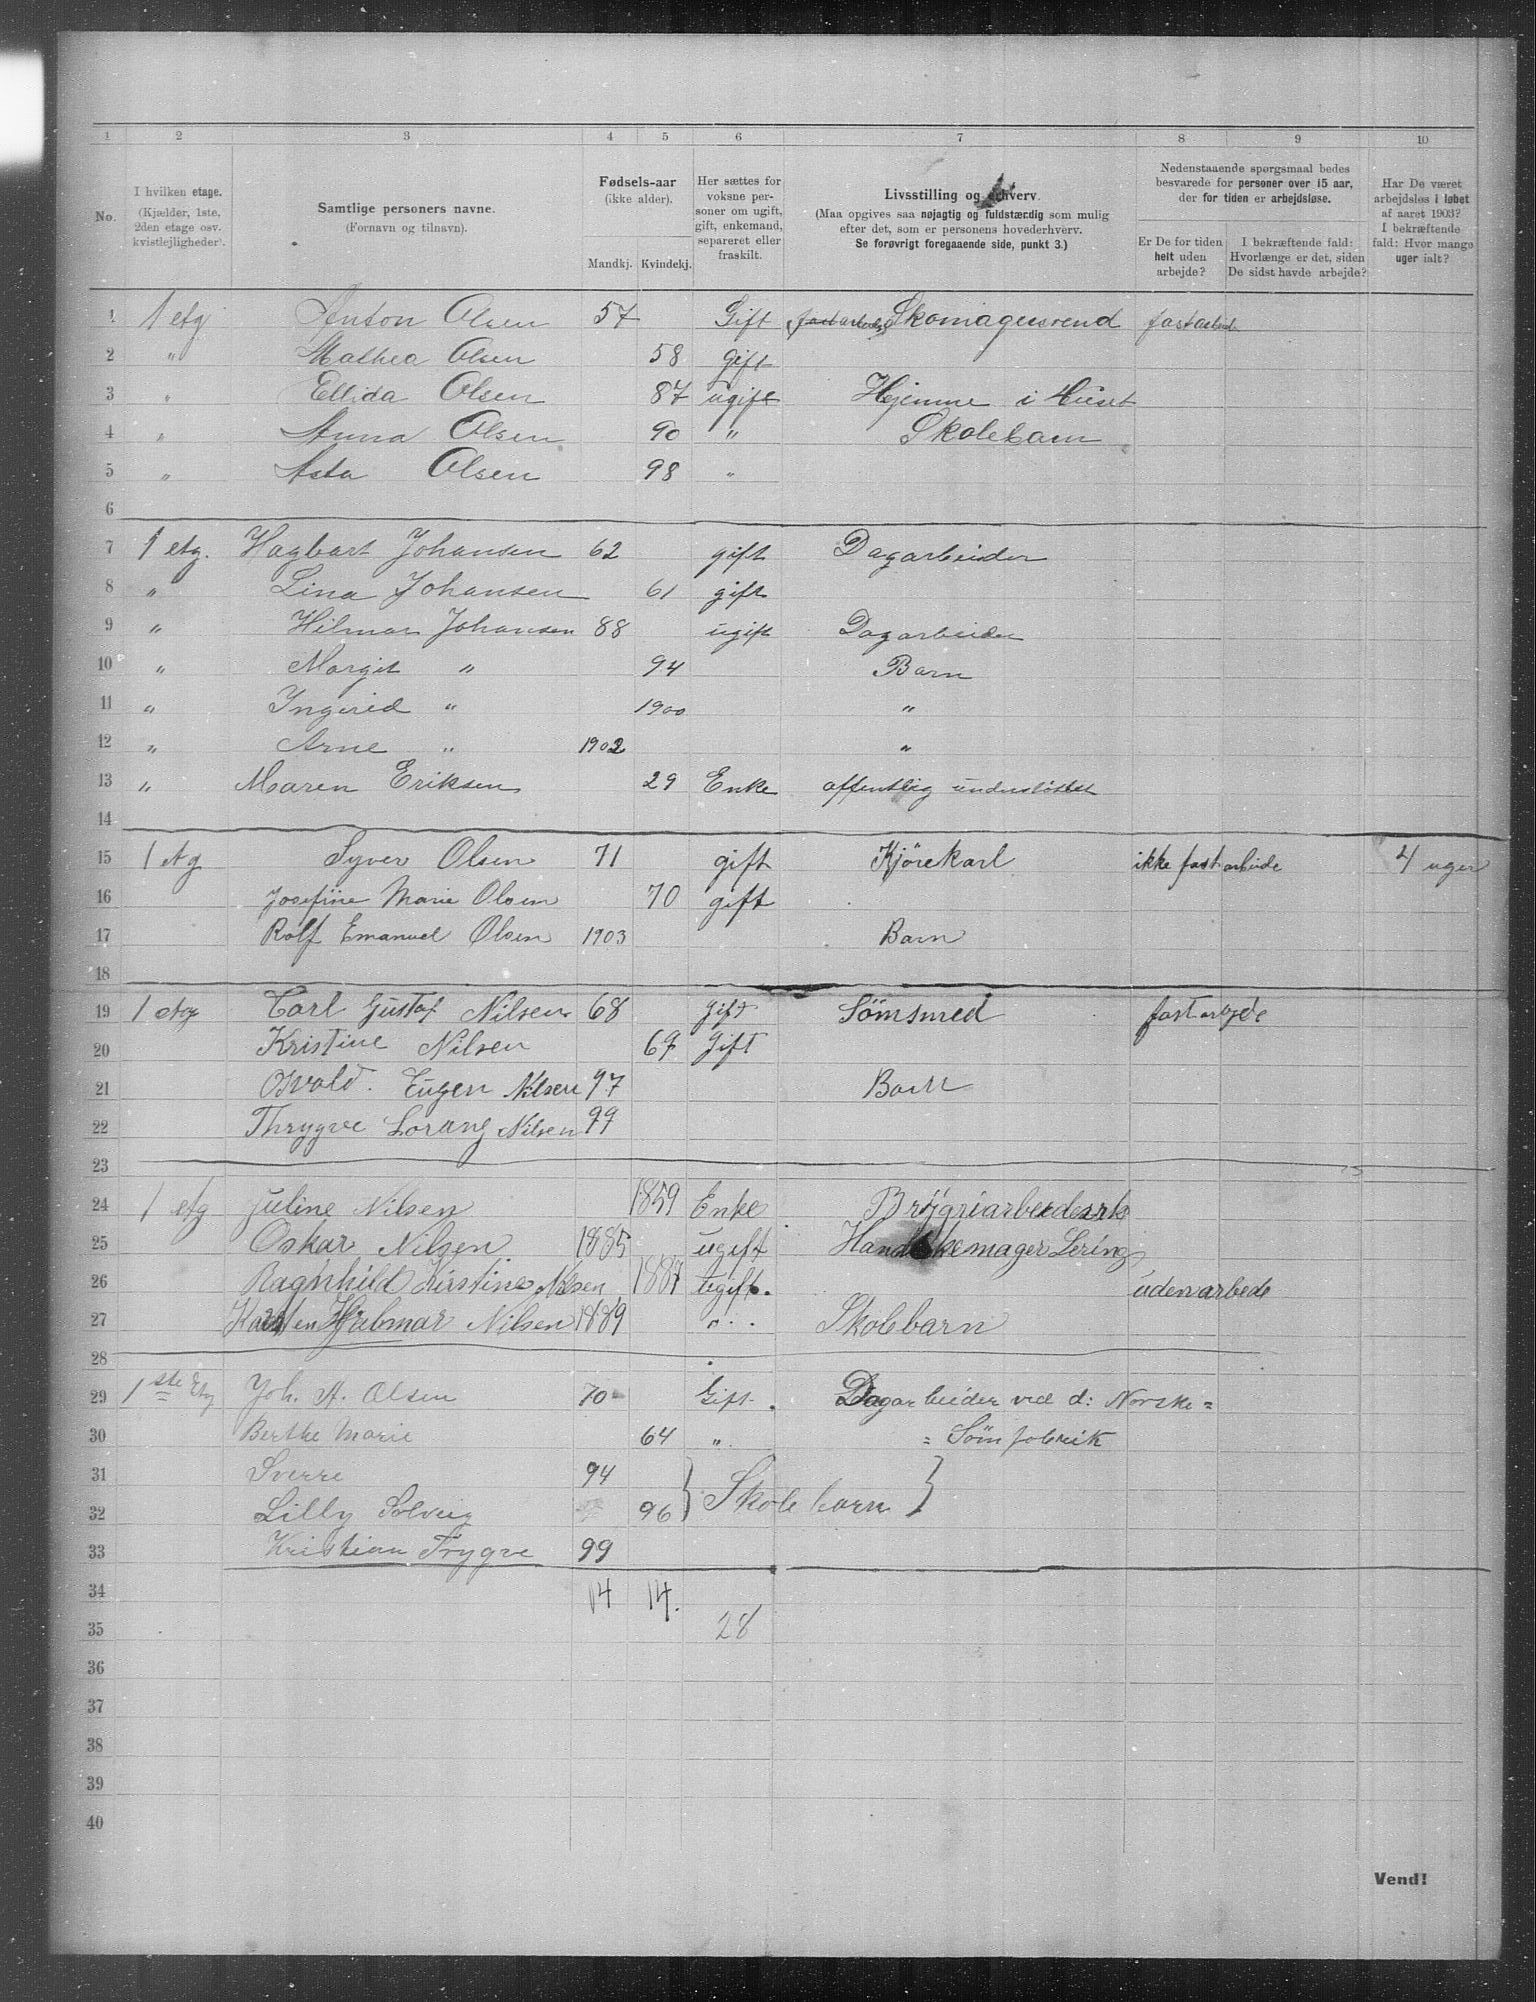 1 2 3 4 5 6 7 8 9 10
No.
I hvilken etage.
(Kjælder, 1ste,
2den etage osv.
kvistlejligheder).
Samtlige personers navne.
(Fornavn og tilnavn).
Fødsels-aar
(ikke alder).
Mandkj. Kvindekj.
Her sættes for
voksne per-
soner om ugift,
gift, enkemand,
separeret eller
fraskilt.
Livsstilling og erhverv.
(Maa opgives saa nøjagtig og fuldstændig som mulig
efter det, som er personens hovederhverv.
Se forøvrigt foregaaende side, punkt 3.)
Nedenstaaende spørgsmaal bedes
besvarede for personer over 15 aar,
der for tiden er arbejdsløse.
Er De for tiden
helt uden
arbejde?
I bekræftende fald:
Hvorlænge er det, siden
De sidst havde arbejde?
Har De været
arbejdsløs i løbet
af aaret 1903?
I bekræftende
fald: Hvor mange
uger ialt?
1 1 etg Anton Olsen 57 Gift Skomagersvend fastarbeide
2 " Mathea Olsen 58 gift
3 " Ellida Olsen 87 ugift Hjemme i Huset
4 " Anna Olsen 90 " Skolebarn
5 " Asta Olsen 98 "
6
7 1 etg. Hagbart Johansen 62 gift Dagarbeider
8 " Lina Johansen 61 gift
9 " Hilmar Johansen 88 ugift Dagarbeider
10 " Margit " 94 Barn
11 " Ingerid " 1900 "
12 " Arne " 1902 "
13 " Maren Eriksen 29 Enke offentlig understøttet
14
15 1 etg Syver Olsen 71 gift Kjørekarl ikke fast arbeide 4 uger
16 Josefine Marie Olsen 70 gift
17 Rolf Emanuel Olsen 1903 Barn
18
19 1 etg Carl Gustaf Nilsen 68 gift Sömsmed fast arbjede
20 Kristine Nilsen 69 Gift
21 Osvald. Eugen Nilsen 97 Barn
22 Thrygve Lorang Nilsen 99
23
24 1 etg Juline Nilsen 1859 Enke
25 Oskar Nilsen 1885 ugift Handskemager Lering
26 Ragnhild Kirstine Nilsen 1887 ugift. uden arbede
27 Karsten Hjalmar Nilsen 1889 " Skolebarn
28
29 1ste Etg Joh. A. Olsen 70 Gift. Dagarbeider ved d: Norske =
30 Berthe Marie 64 " = Sömfabrik
31 Sverre 94 } Skolebarn }
32 Lilly Solveig 96
33 Kristian Trygve 99
34 14 14.
35 28
36
37
38
39
40
Vend!